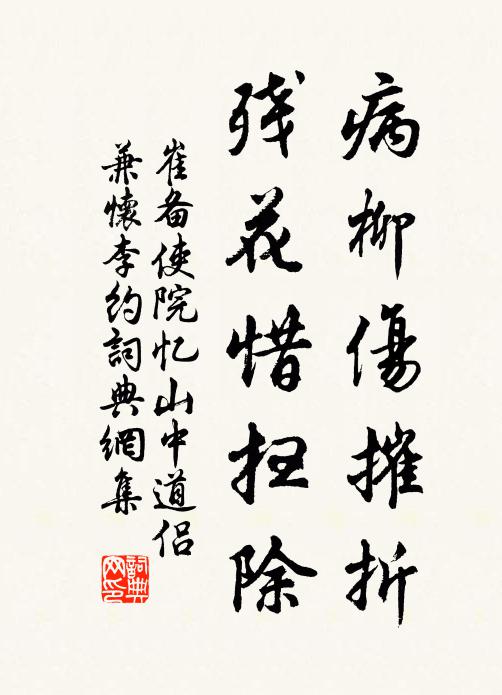 病柳傷摧折
残花惜扫除
崔备使院忆山中道侣
兼懷李约詞典網集
詞典网印